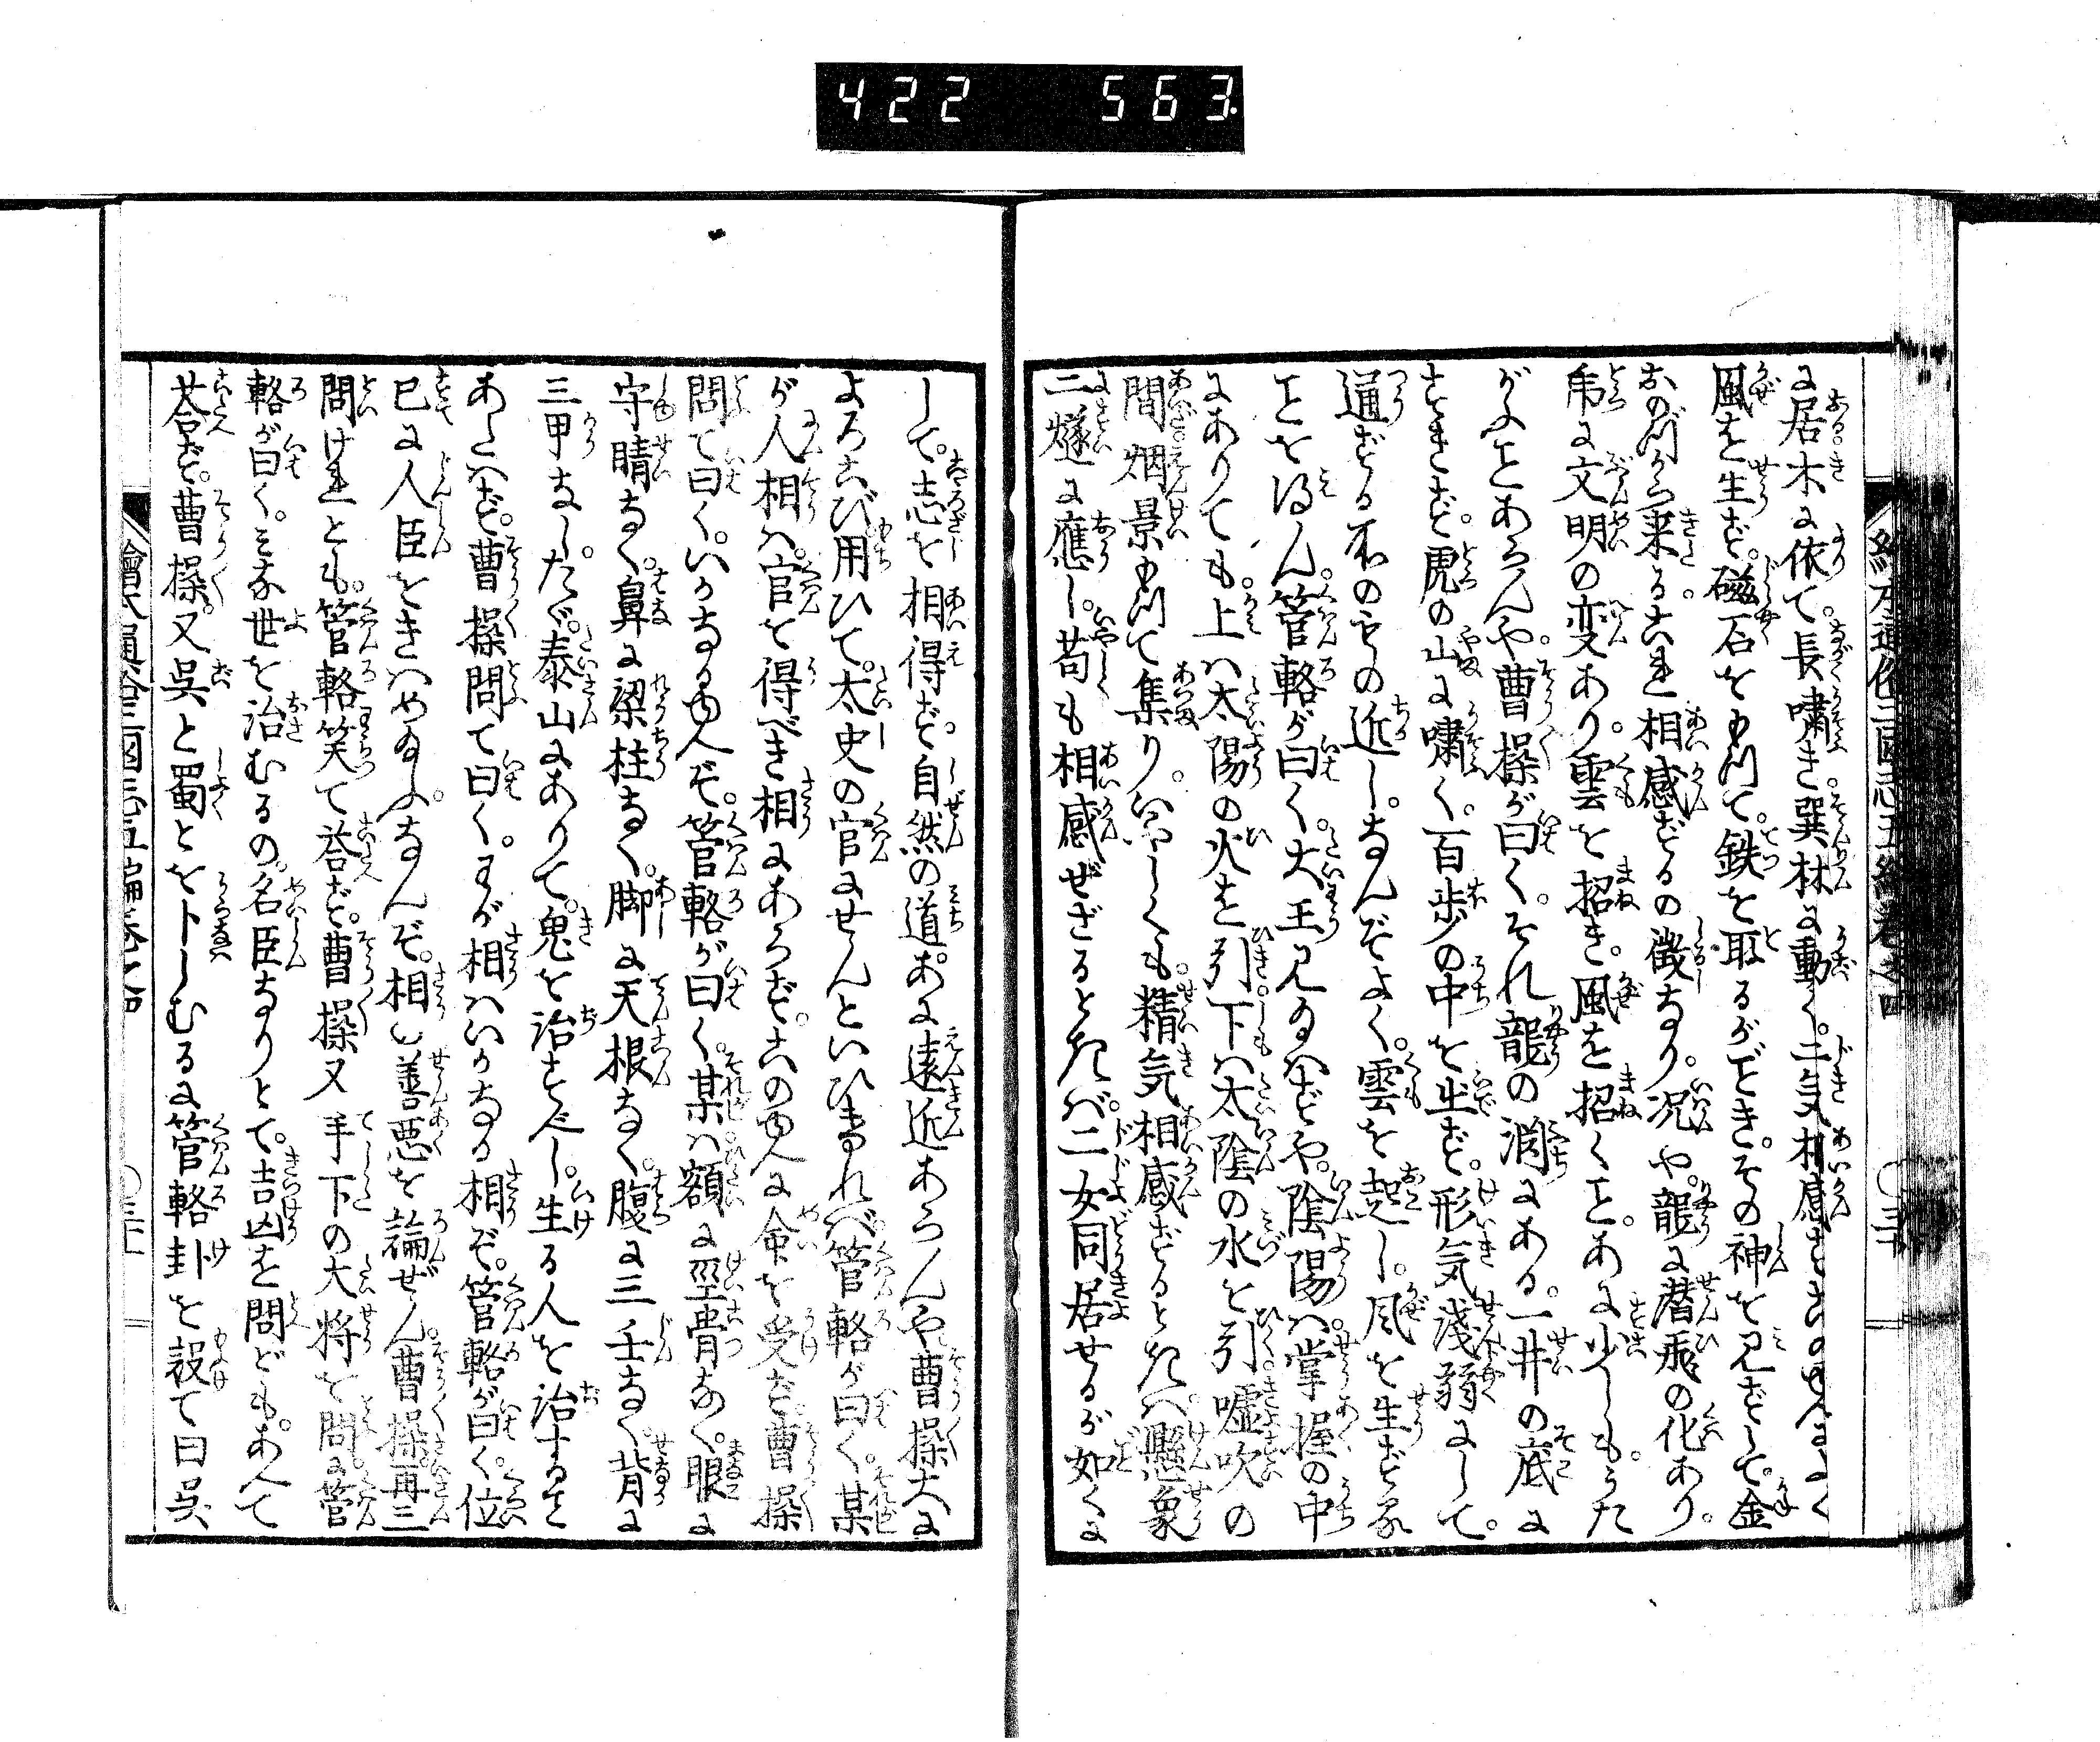 422 563
に居木に依て。長嘯き。巽林に動く。二気相感ずる
風を生ず。磁石をゆつて。鉄を取るがごとき。その神を見ずして。金
おのづから来る。これ相感ずるの徴なり。况や。龍に潜飛の化あり。
乕に文明の変あり。雲を招き。風を招くこと。あに少しも。うた
がふことあらんや。曹操が曰く。それ龍の渊にある。一井の底に
すぎず。虎の山に嘯く。百歩の中を出ず。形気浅弱にして。
通ずる所のもの近し。なんぞよく。雲を起し。風を生ぜん
ことを得ん。管輅が曰く。大王見るはずや。陰陽は。掌握の中
にありても。上は太陽の火を引。下は太陰の水を引。嘘吹の
間。烟景ゆつて集り。いやしくも。精気相感ずるときは。懸象
二燧に應し。苟も相感ぜざるときは。二女同居せるが如くに
して。志を相得ず。自然の道。あに遠近あらんや。曹操大に
よろこび。用ひて。太史の官にせんといひければ。管輅が曰く。某
が人相は。官を得べき相にあらず。この人に命を受ず。曹操
問て曰く。いかなる人ぞ。管輅が曰く。某は。額に巠骨なく。眼に
守睛なく。鼻に梁柱なく。脚に天根なく。腹に三壬なく。背に
三甲なし。たゞ。泰山にありて。鬼を治すべし。生る人を治する
あたはず。曹操問て曰く。わが相はいかなる相ぞ。管輅が曰く。位
已に人臣をきはめ給ふ。なんぞ。相の善悪を論ぜん。曹操再三
問けれども。管輅笑て荅ず。曹操又手下の大将を問に管
輅が曰く。みな世を治むるの。名臣なりとて。吉凶を問ども。あへて
荅ず。曹操。又呉と蜀とを卜しむるに管輅卦を設て曰呉
繪本通俗三國志五編巻之四